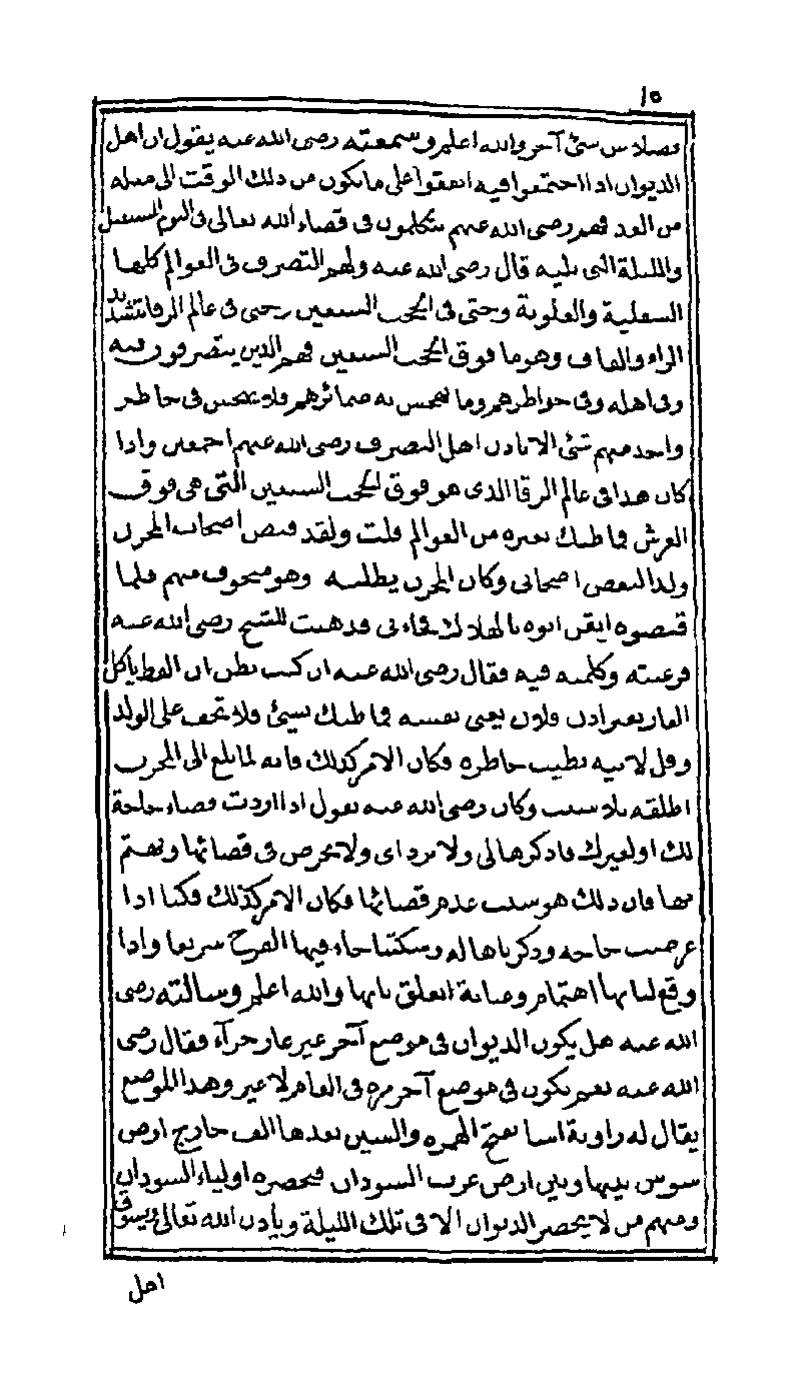 ١٥
فضلا عن شئ آخر والله اعلم وسمعته رضى الله عنه يقول ان اهل
الديوان اذا اجتمعوا فيه اتفقوا على ما يكون من ذلك الوقت الى مثله
من الغد فهم رضى الله عنهم يتكلمون فى قضاء الله تعالى فى اليوم المستقبل
والليلة التى تليه قال رضى الله عنه ولهم التصرف فى العوالم كلها
السفلية والعلوية وحتى فى الحجب السبعين وحتى فى عالم الرقا بتشديد
الراء والقاف وهو ما فوق الحجب السبعين فهم الذين يتصرفون فيه
وفى اهله وفى خواطرهم وما تهجس به ضمائرهم فلا يهجس فى خاطر
واحد منهم شئ الا باذن اهل التصرف رضى الله عنهم اجمعين واذا
كان هذا فى عالم الرقا الذى هو فوق الحجب السبعين التى هى فوق
العرش فما ظنك بغيره من العوالم قلت ولقد قبض اصحاب المخزن
ولدا لبعض اصحابى وكان المخزن يطلبه وهو متخوف منهم فلما
قبضوه ايقن ابوه بالهلاك فجاءنى فذهبت للشيخ رضى الله عنه
فرغبته وكلمته فيه فقال رضى الله عنه ان كنت تظن ان القط ياكل
الفار بغير اذن فلان يعنى نفسه فما ظنك بشئ فلا تخف على الولد
وقل لابيه يطيب خاطره فكان الامر كذلك فانه لما بلغ الى المخزن
اطلقه بلا سبب وكان رضى الله عنه يقول اذا اردت قضاء حاجة
لك او لغيرك فاذكرها لى ولا تزد اى ولا تحرص فى قضائها وتهتم
بها فان ذلك هو سبب عدم قضائها فكان الامر كذلك فكنا اذا
عرضت حاجه وذكرناها له وسكتنا جاء فيها الفرج سريعا واذا
وقع لنا بها اهتمام وعناية انغلق بابها والله اعلم وسالته رضى
الله عنه هل يكون الديوان فى موضع آخر غير غار حرآء فقال رضى
الله عنه نعم يكون فى موضع آخر مره فى العام لا غير وهذا الموضع
يقال له زاوية اسا بفتح الهمزه والسين بعدها الف خارج ارض
سوس بينها وبين ارض غرب السودان فيحضره اولياء السودان
ومنهم من لا يحضر الديوان الا فى تلك الليلة وياذن الله تعالى ويسوق
اهل